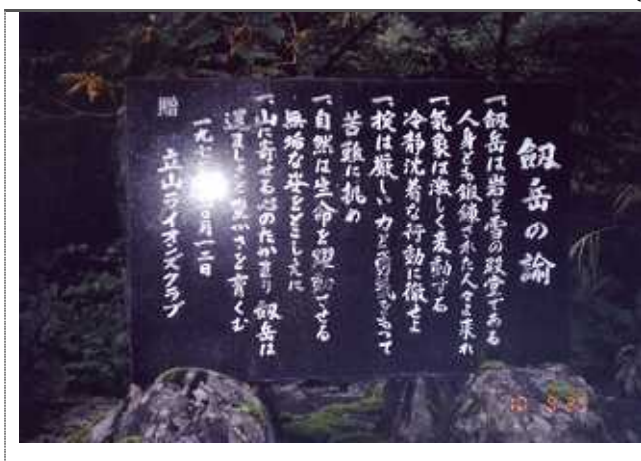 劔岳の諭
一、劔岳は岩と雪の殿堂である
人身とも鍛練された人々よ来れ
一、気象は激しく変動する
冷静沈着な行動に徹せよ
一、掟は厳しい力と勇気をもって
苦難に挑め
一、自然は生命を躍動させる
無垢な姿をとこしえに
一、山に寄せる心のたかまり 劔岳は
逞ましさと豊かさを育くむ
一九七 月一二日
贈 立山ライオンズクラブ